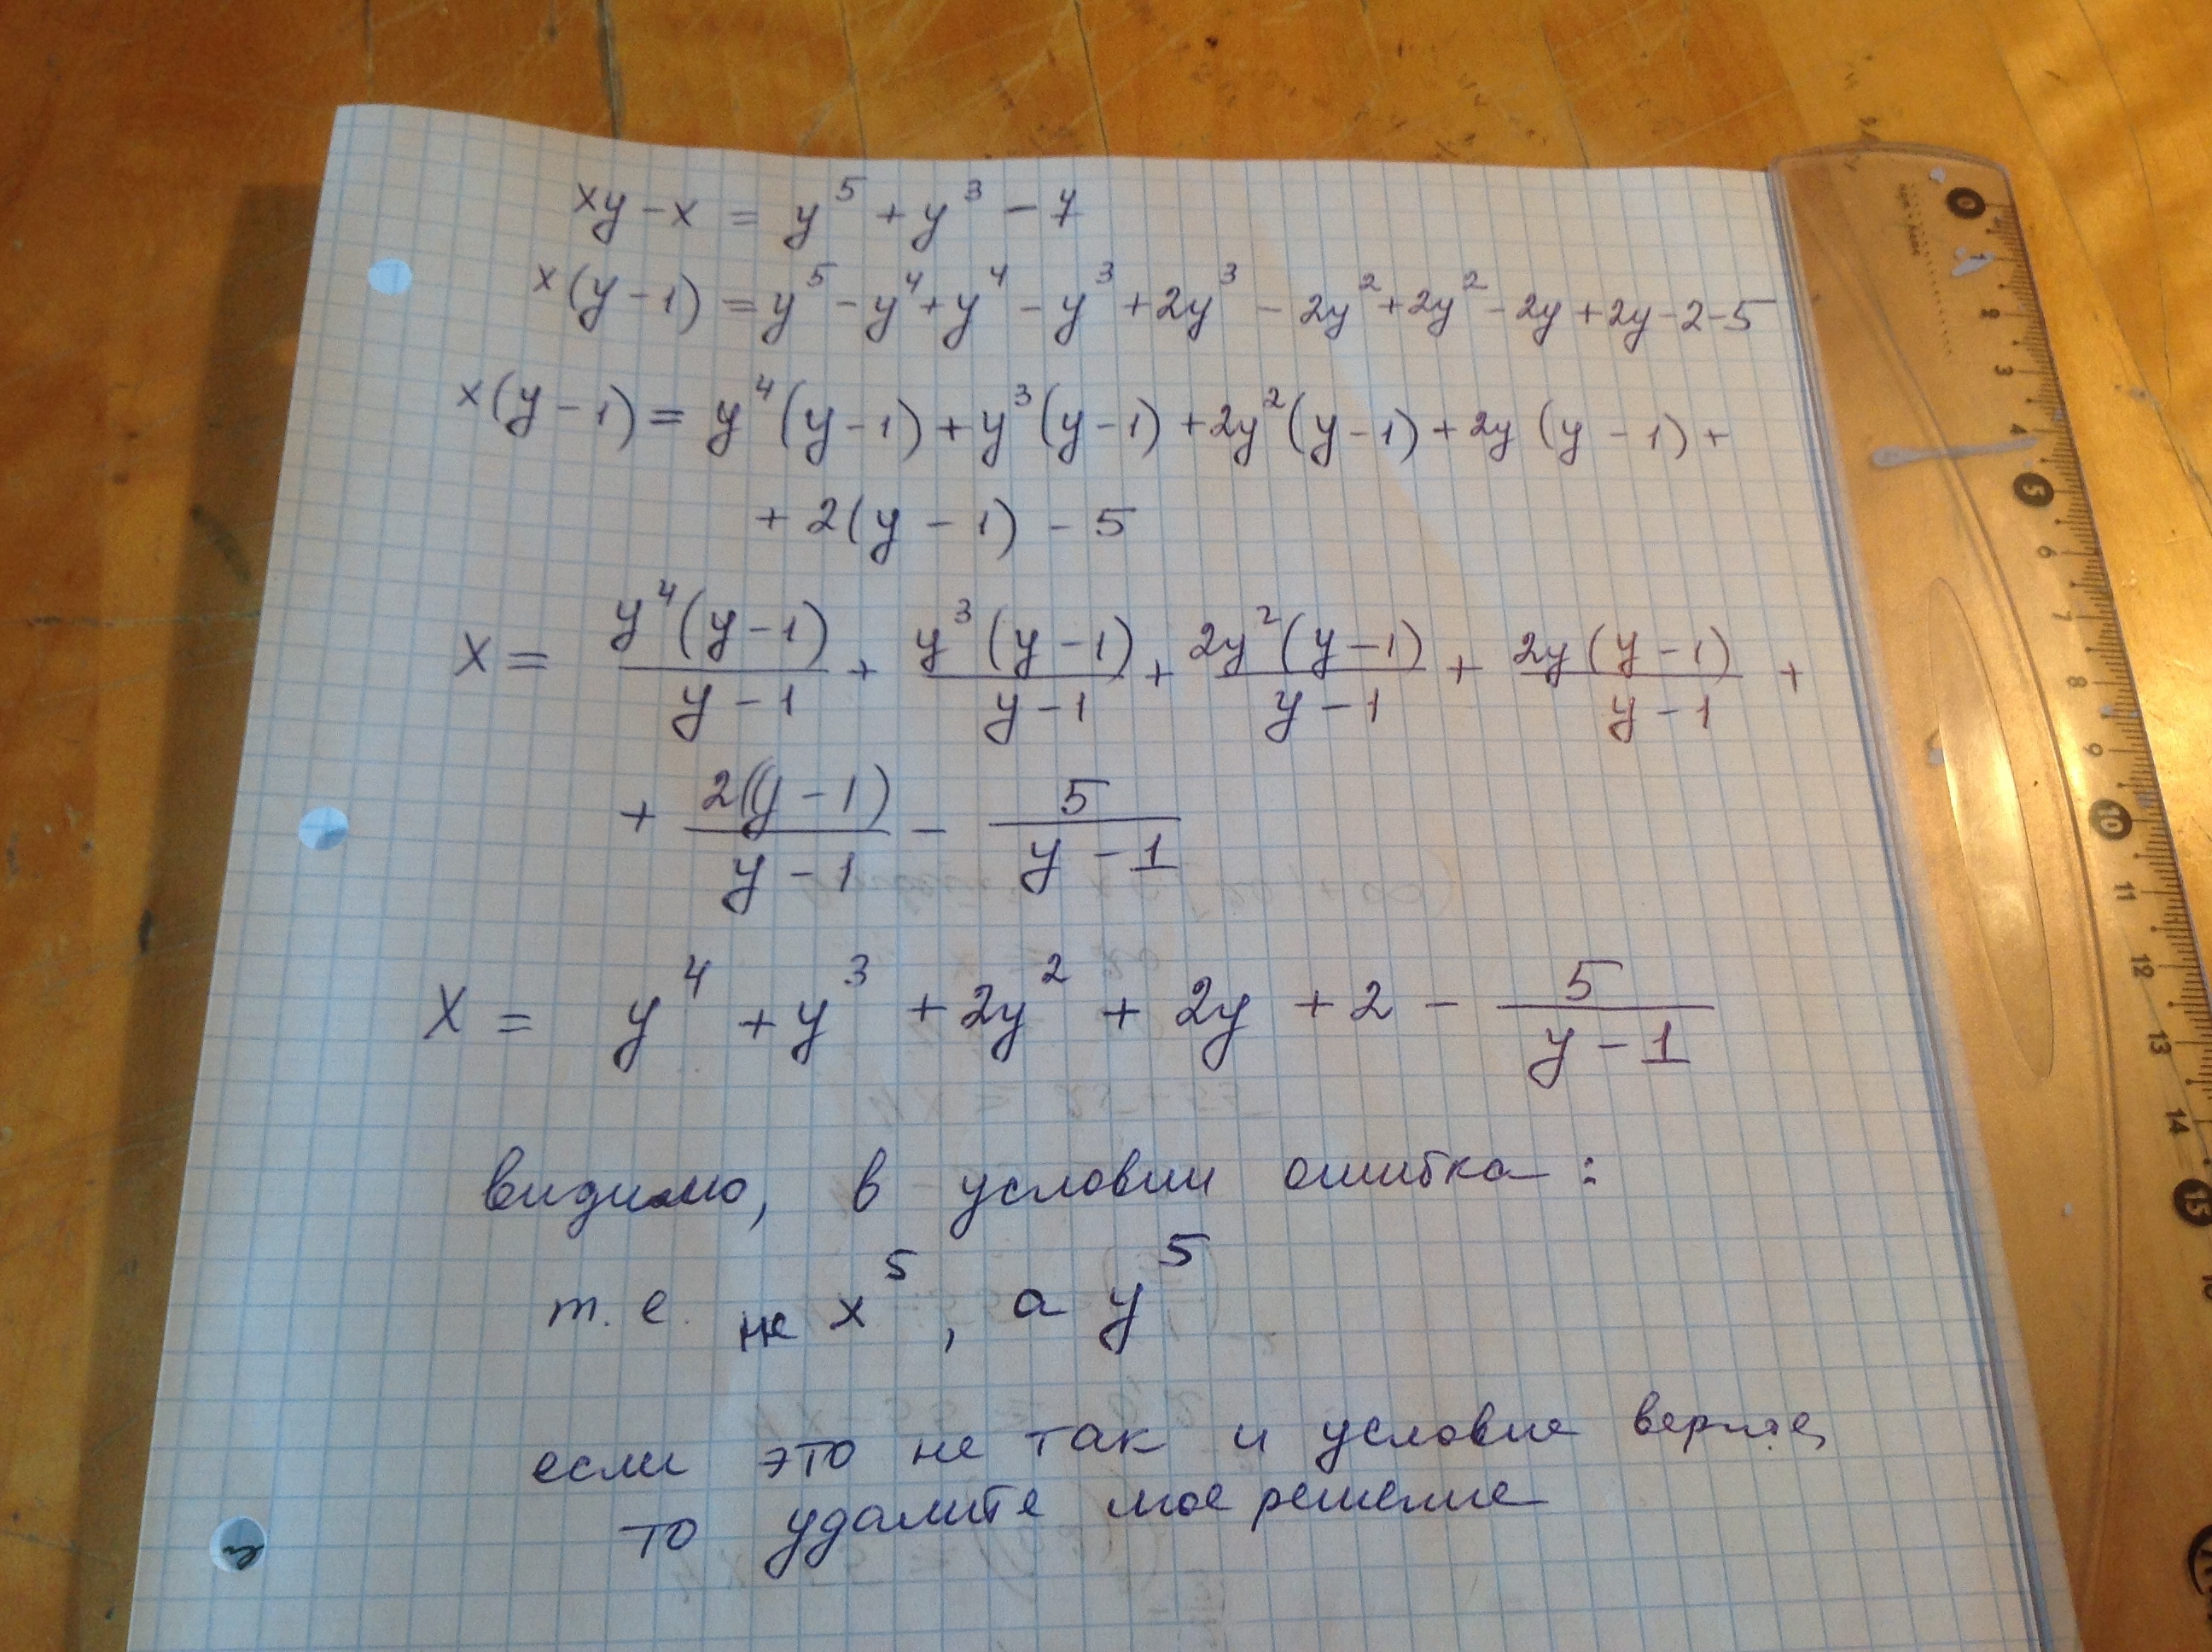 xy - x = y⁵ + y³ - 7
x(y - 1) = y⁵ - y⁴ + y⁴ - y³ + 2y³ - 2y² + 2y² - 2y + 2y - 2 - 5
x(y - 1) = y⁴(y - 1) + y³(y - 1) + 2y²(y - 1) + 2y(y - 1) +
+ 2(y - 1) - 5
x = y⁴(y - 1)/(y - 1) + y³(y - 1)/(y - 1) + 2y²(y - 1)/(y - 1) + 2y(y - 1)/(y - 1) +
+ 2(y - 1)/(y - 1) - 5/(y - 1)
x = y⁴ + y³ + 2y² + 2y + 2 - 5/(y - 1)
видимо, в условии ошибка:
т.е. не x⁵, а y⁵
если это не так и условие верное,
то удалите мое решение
0
1
2
3
4
5
6
7
8
9
10
11
12
13
14
15